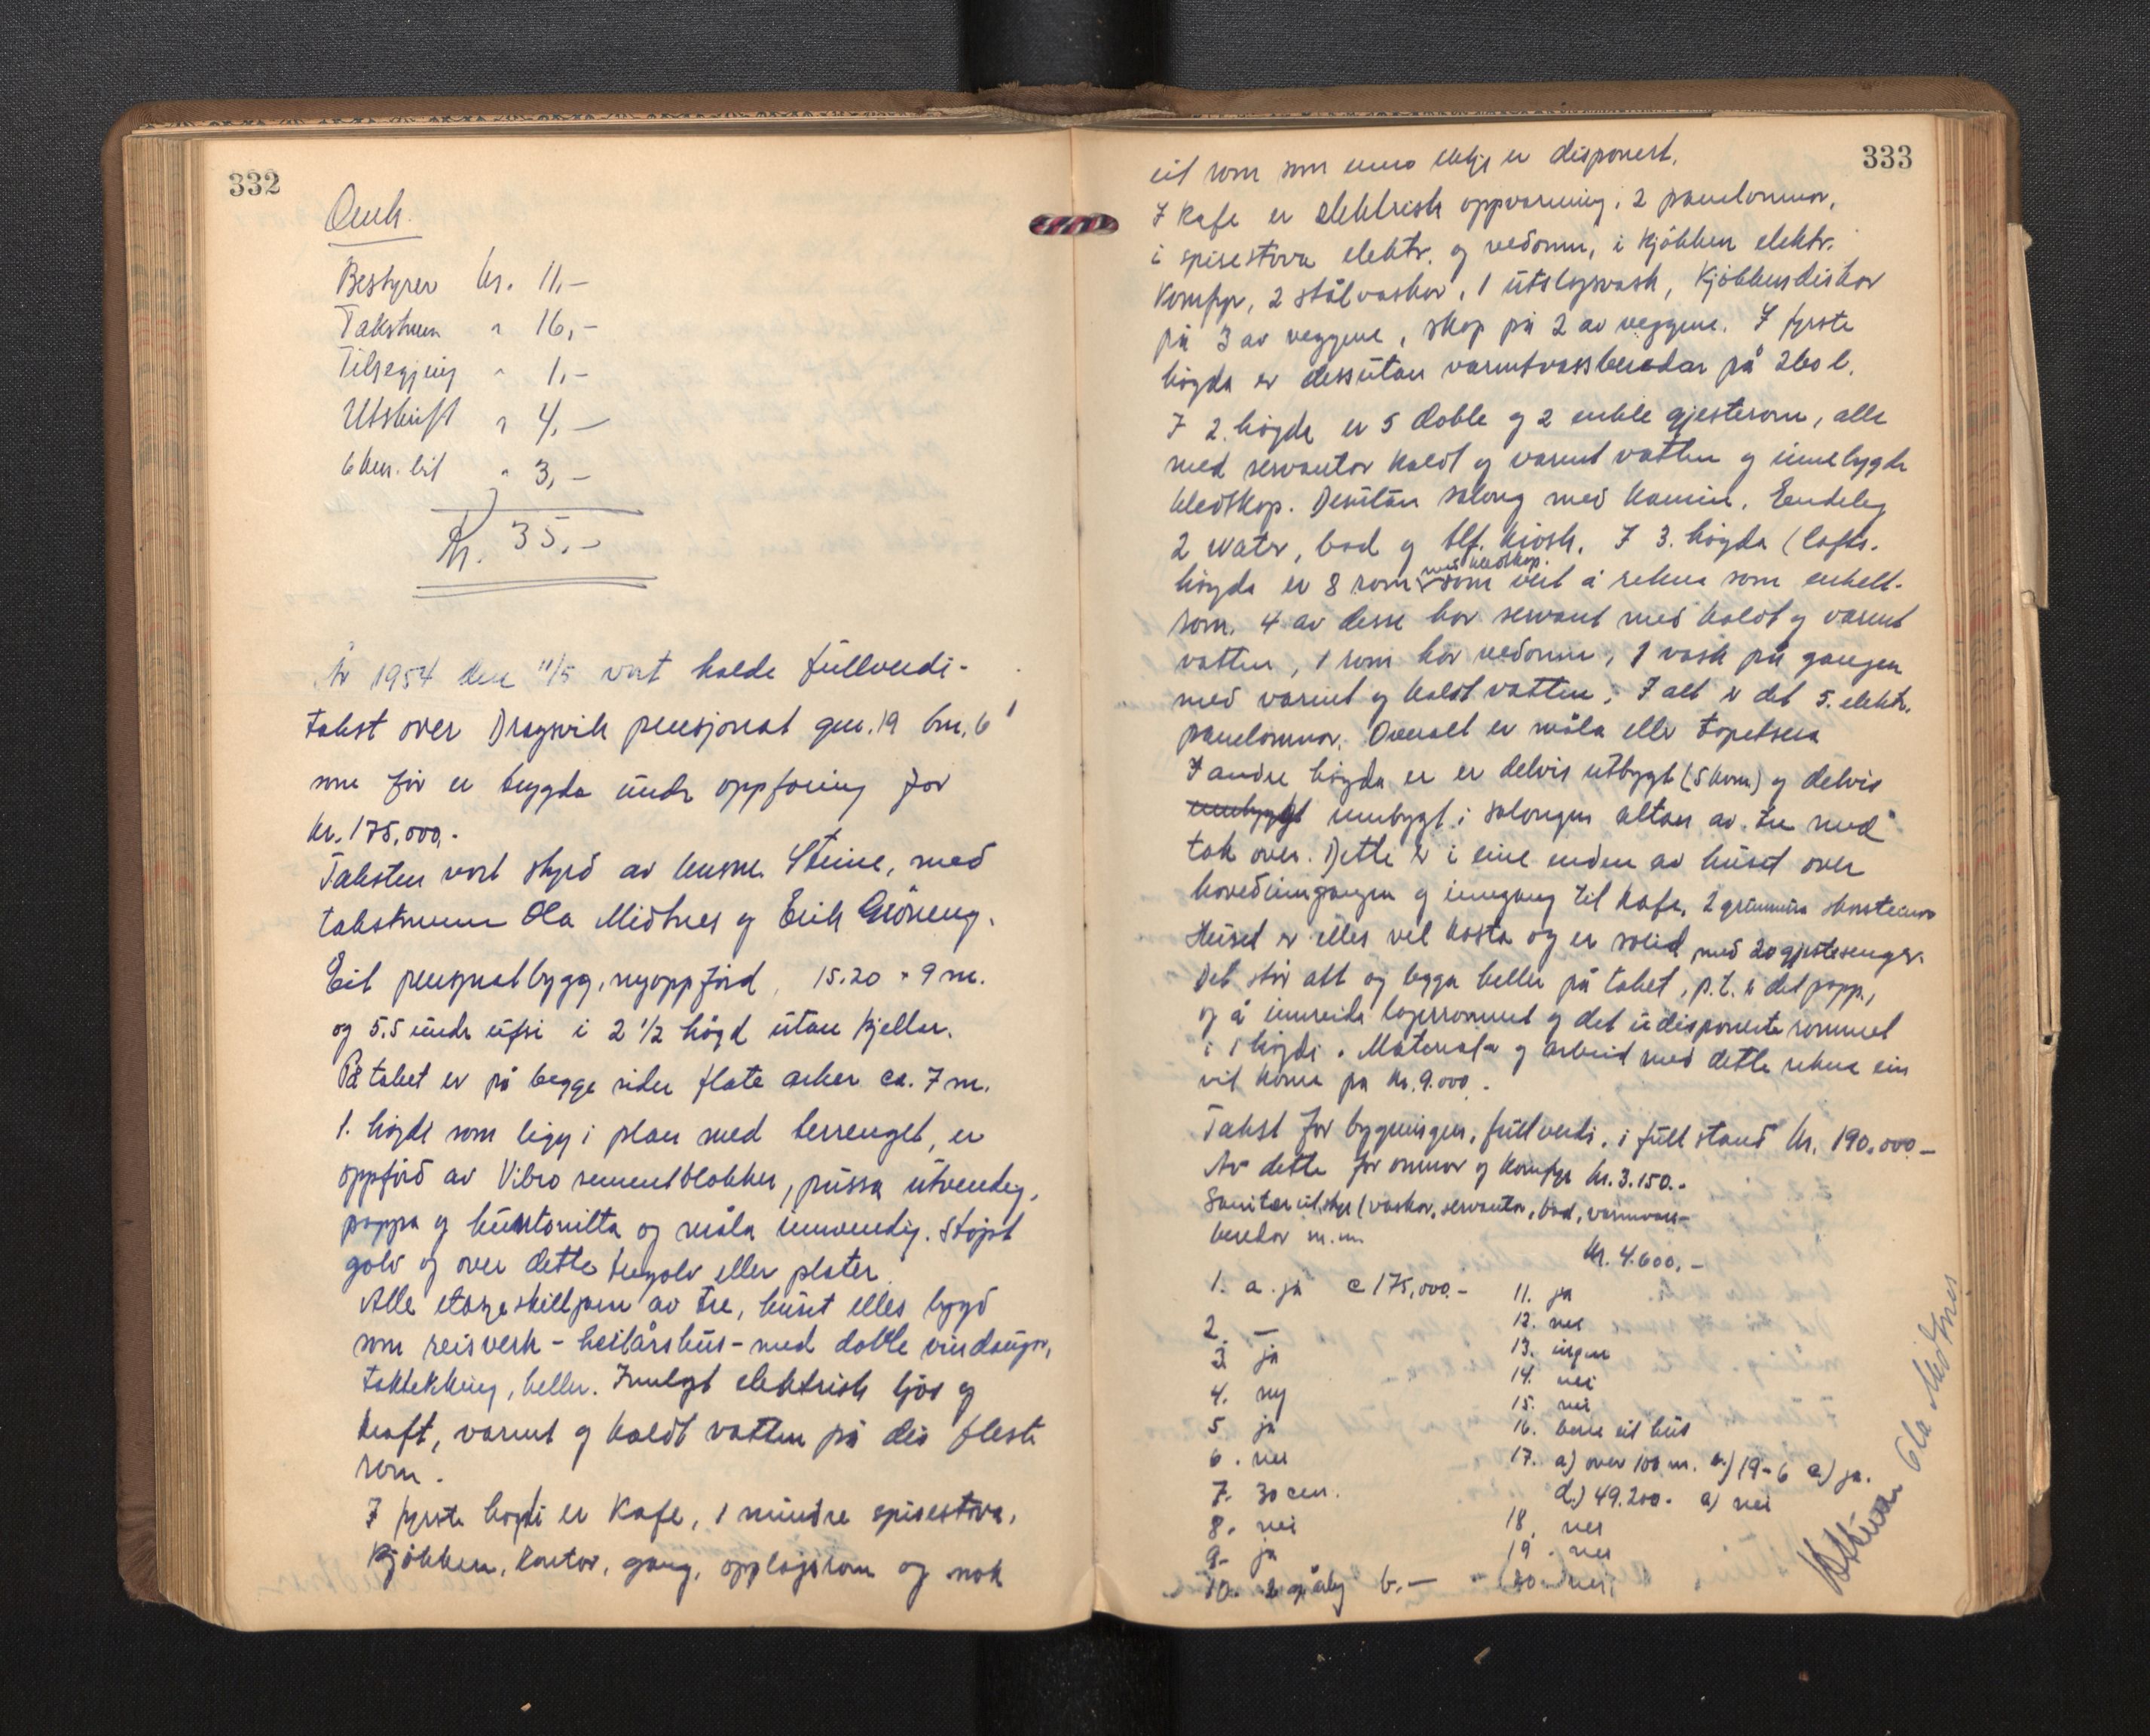 332
Omk.
Bestyrer kr. 11,-
Takstmenn " 16,-
Tilsegjing " 1,-
Utskrift " 4,-
6 km. bil " 3,-
Kr. 35,-
År 1954 den 11/5 vart halde fullverdi-
takst over Dragsvik pensjonat gnr. 19 bnr. 6
som før er trygda under oppføring for
kr. 175,000.-
Taksten vart styrd av lensm. Steine, med
takstmenn Ola Midtnes og Erik Grøneng.
Eit pensjonatbygg, nyoppførd, 15.20 × 9 m.
og 5.5 under ufsi i 2 1/2 høgd utan kjellar.
På taket er på begge sider flate arker ca. 7 m.
1. høgdi som ligg i plan med terrenget, er
oppførd av Vibro sementblokker, pussa utvendig,
pappa og huntonitta og måla innvendig. Støypt
golv og over dette tregolv eller plater.
Alle etasjeskilljarn av tre, huset elles bygd
som reisverk - heilårshus - med doble vindaugo,
taktekking, heller. Innlagt elektrisk ljos og
kraft, varmt og kaldt vatten på dei fleste
rom.
I fyrste høgdi er Kafe, 1 mindre spisestova,
kjøkken, kontor, gang, opplagsrom og nok
333
eit rom som enno ikkje er disponert.
I kafe er elektrisk oppvarming, 2 panelomnar,
i spisestova elektr. og vedomn, i kjøkken elektr.
komfyr, 2 stålvaskar, 1 utslagsvask, kjøkkendiskar
på 3 av veggene, skap på 2 av veggene. I fyrste
høgda er dessutan varmtvassberedar på 260 l.
I 2. høgda er 5 doble og 2 enkle gjesterom, alle
med servantar kaldt og varmt vatten og innebygde
kledskap. Desutan salong med kamin. Endeleg
2 water, bad og tlf. kiosk. I 3. høgda (lofts-
høgda er 8 rom med kledskap. som vert å rekna som enkelt-
rom. 4 av desse har servant med kaldt og varmt
vatten, 1 rom har vedomn, 1 vask på gangen
med varmt og kaldt vatten. I alt er det 5. elektr.
panelomnar. Overalt er måla eller tapetsera
I andre høgda er er delvis utbygt (5 kvm) og delvis
innbygt innbygt i salongen altan av tre med
tak over. Dette er i eine enden av huset over
hovedinngangen og inngang til kafe. 2 grunnmura skorsteinar
Huset er elles vel kosta og er solid med 20 gjestesenger.
Det står att og leggja heller på taket, p.t. er det papp,
og å innreida lagerrommet og det udisponerte rommet
i 1 høgdi. Materialar og arbeid med dette rekna ein
vil koma på kr. 9.000.-
Takst for bygningen, fullverdi, i full stand kr. 190.000.-
Av dette for omnar og komfyr kr. 3.150.-
Sanitærutstyr (vaskar, servantar, bad, varmvass-
beredar m.m. kr. 4.600.-
1. a. ja c 175,000.-
2. —
3 ja
4. ny
5 ja
6. nei
7. 30 cm.
8. nei
9. ja
10. b. —
11. ja
12. nei
13. ingen
14. nei
15. nei
16. berre eit hus
17. a) over 100 m. b.) 19-6 c) ja.
d.) 49.200.- e) nei
18. nei
19. nei
20. nei
Ola Midtnes